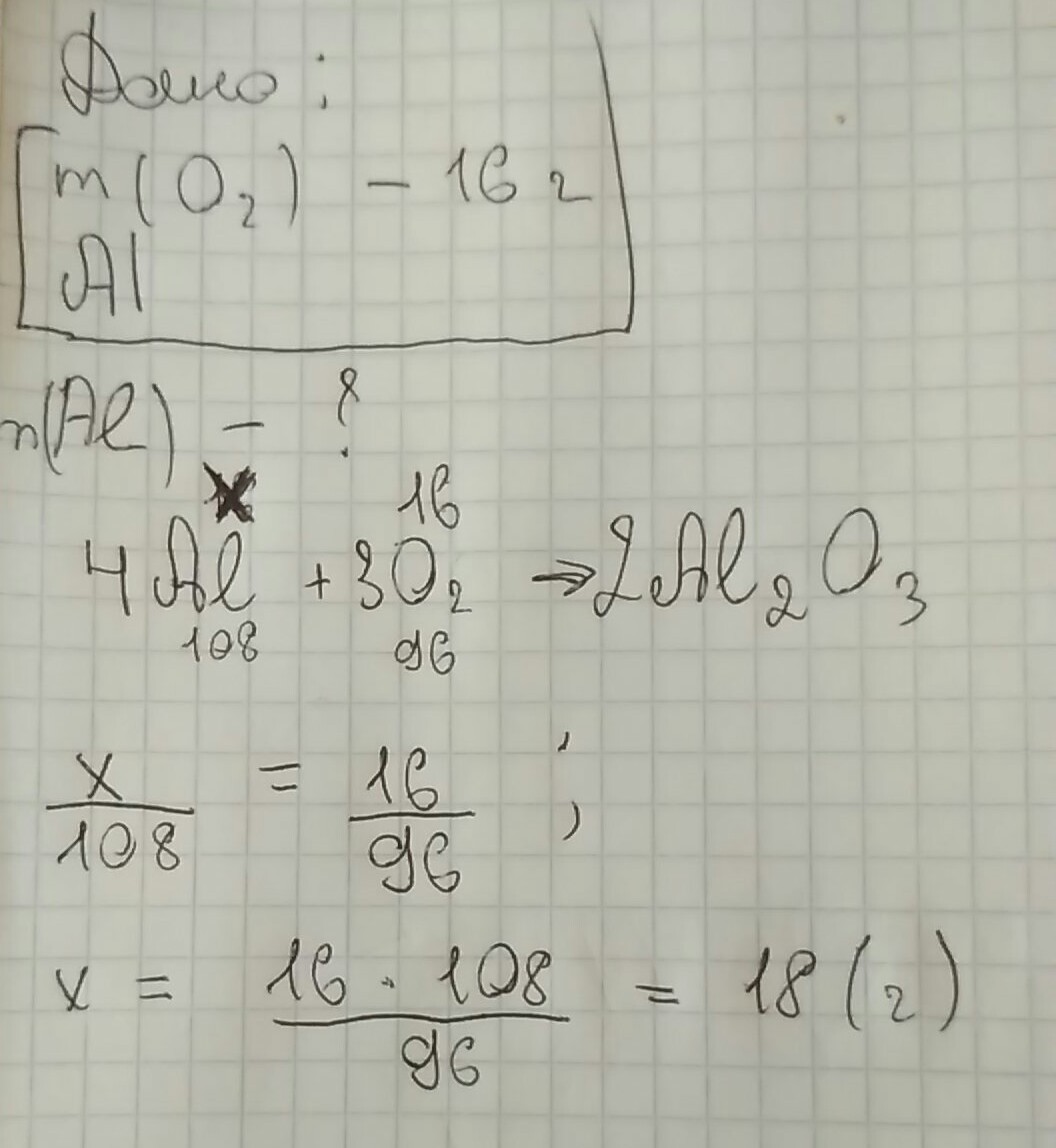 Дано:
m(O₂) – 16 г
Al
m(Al) – ?
x 16
4Al + 3O₂ ⇒ 2Al₂O₃
108 96
x/108 = 16/96 ;
x = 16 · 108/96 = 18 (г)